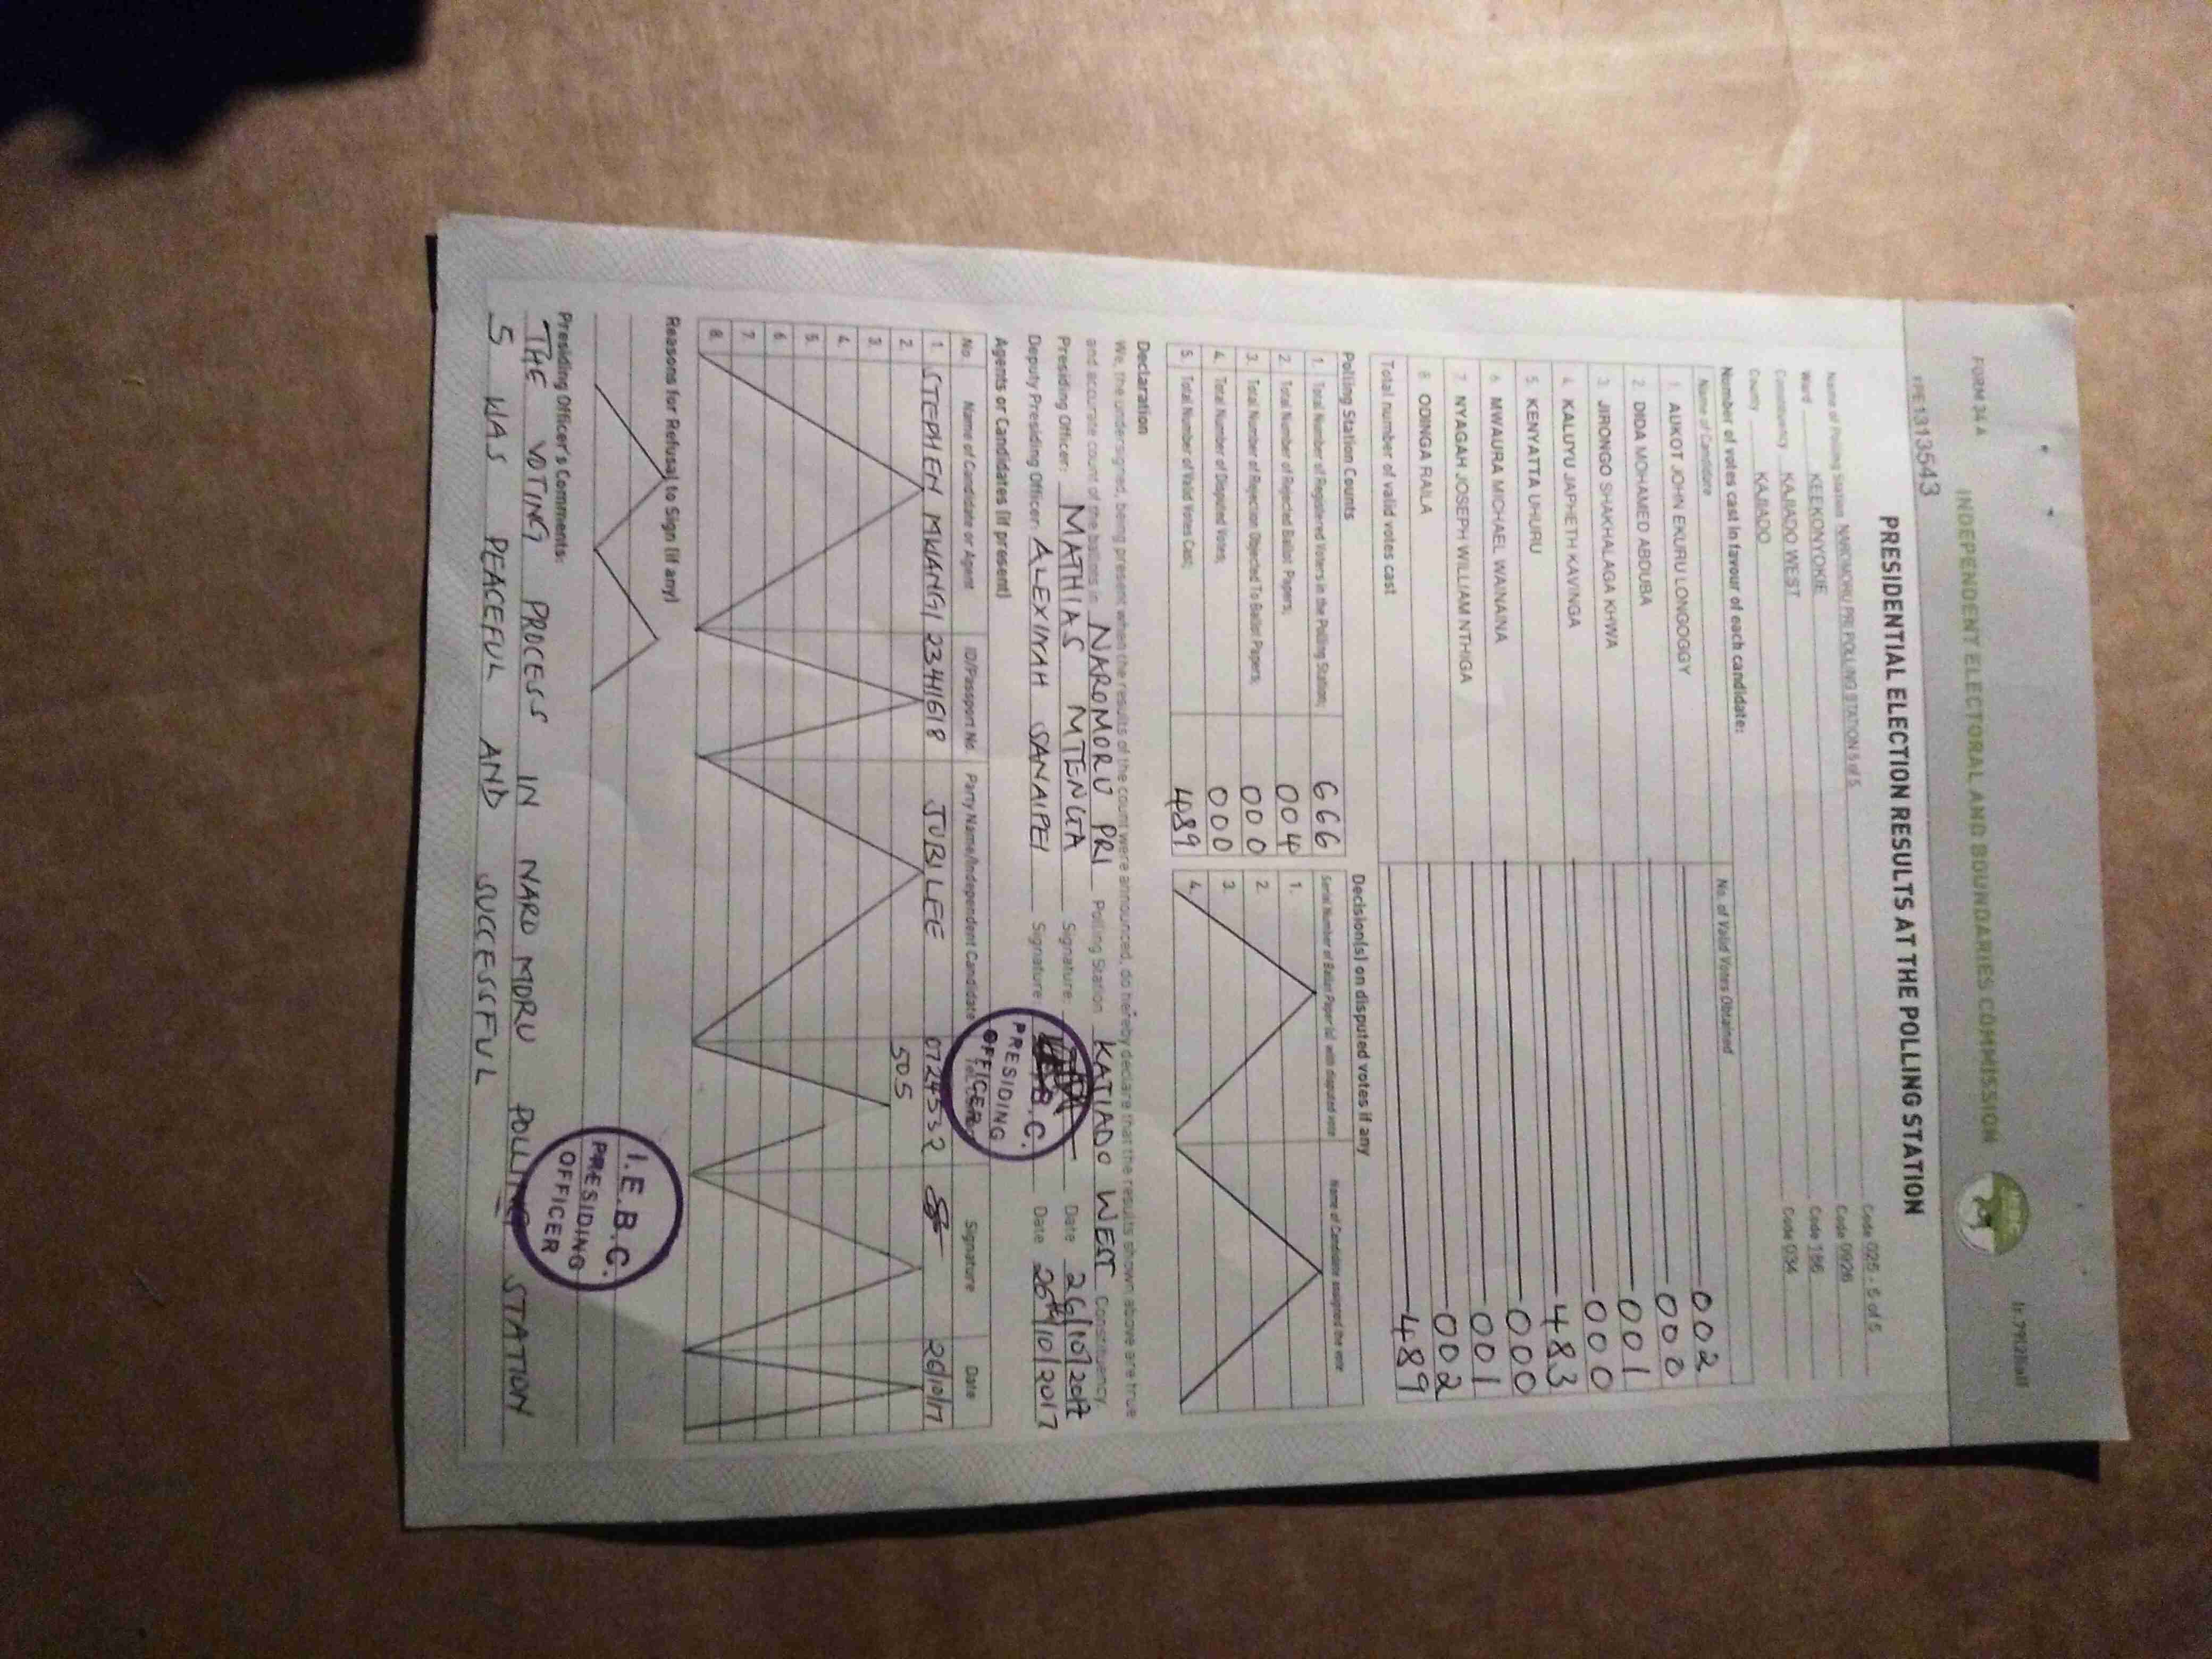 FORM 34 A
INDEPENDENT ELECTORAL AND BOUNDARIES COMMISSION
IEBC
PPE1313543
PRESIDENTIAL ELECTION RESULTS AT THE POLLING STATION
Name of Polling Station NAROMORU PRI POLLING STATION 5 of 5 Code 025 - 5 of 5
Ward KEEKONYOKIE Code 0926
Constituency KAJIADO WEST Code 186
County KAJIADO Code 034
Number of votes cast in favour of each candidate:
Name of Candidate No. of Valid Votes Obtained
1. AUKOT JOHN EKURU LONGOGGY 002
2. DIDA MOHAMED ABDUBA 000
3. JIRONGO SHAKHALAGA KHWA 001
4. KALUYU JAPHETH KAVINGA 000
5. KENYATTA UHURU 483
6. MWAURA MICHAEL WAINAINA 000
7. NYAGAH JOSEPH WILLIAM NTHIGA 001
8. ODINGA RAILA 002
Total number of valid votes cast 489
Polling Station Counts
1. Total Number of Registered Voters in the Polling Station; 666
2. Total Number of Rejected Ballot Papers; 004
3. Total Number of Rejection Objected To Ballot Papers; 000
4. Total Number of Disputed Votes; 000
5. Total Number of Valid Votes Cast; 489
Decision(s) on disputed votes if any
Serial Number of Ballot Paper (s) with disputed vote Name of Candidate assigned the vote
1.
2.
3.
4.
Declaration
We, the undersigned, being present when the results of the count were announced, do hereby declare that the results shown above are true
and accurate count of the ballots in NAROMORU PRI Polling Station KATIADO WEST Constituency
Presiding Officer: MATHIAS MTENGA Signature: Date 26/10/2017
Deputy Presiding Officer: ALEXIMAH SANAIPEI Signature: Date 26th/10/2017
I.E.B.C.
PRESIDING
OFFICER
Agents or Candidates (if present)
No. Name of Candidate or Agent ID/Passport No. Party Name/Independent Candidate Signature Date
1. STEPHEN MWANGI 23411618 JUBILEE 0724532 26/10/17
2. 505
3.
4.
5.
6.
7.
8.
Reasons for Refusal to Sign (if any)
I.E.B.C.
PRESIDING
OFFICER
Presiding Officer's Comments:
THE VOTING PROCESS IN NARO MORU POLLING STATION
5 WAS PEACEFUL AND SUCCESSFUL